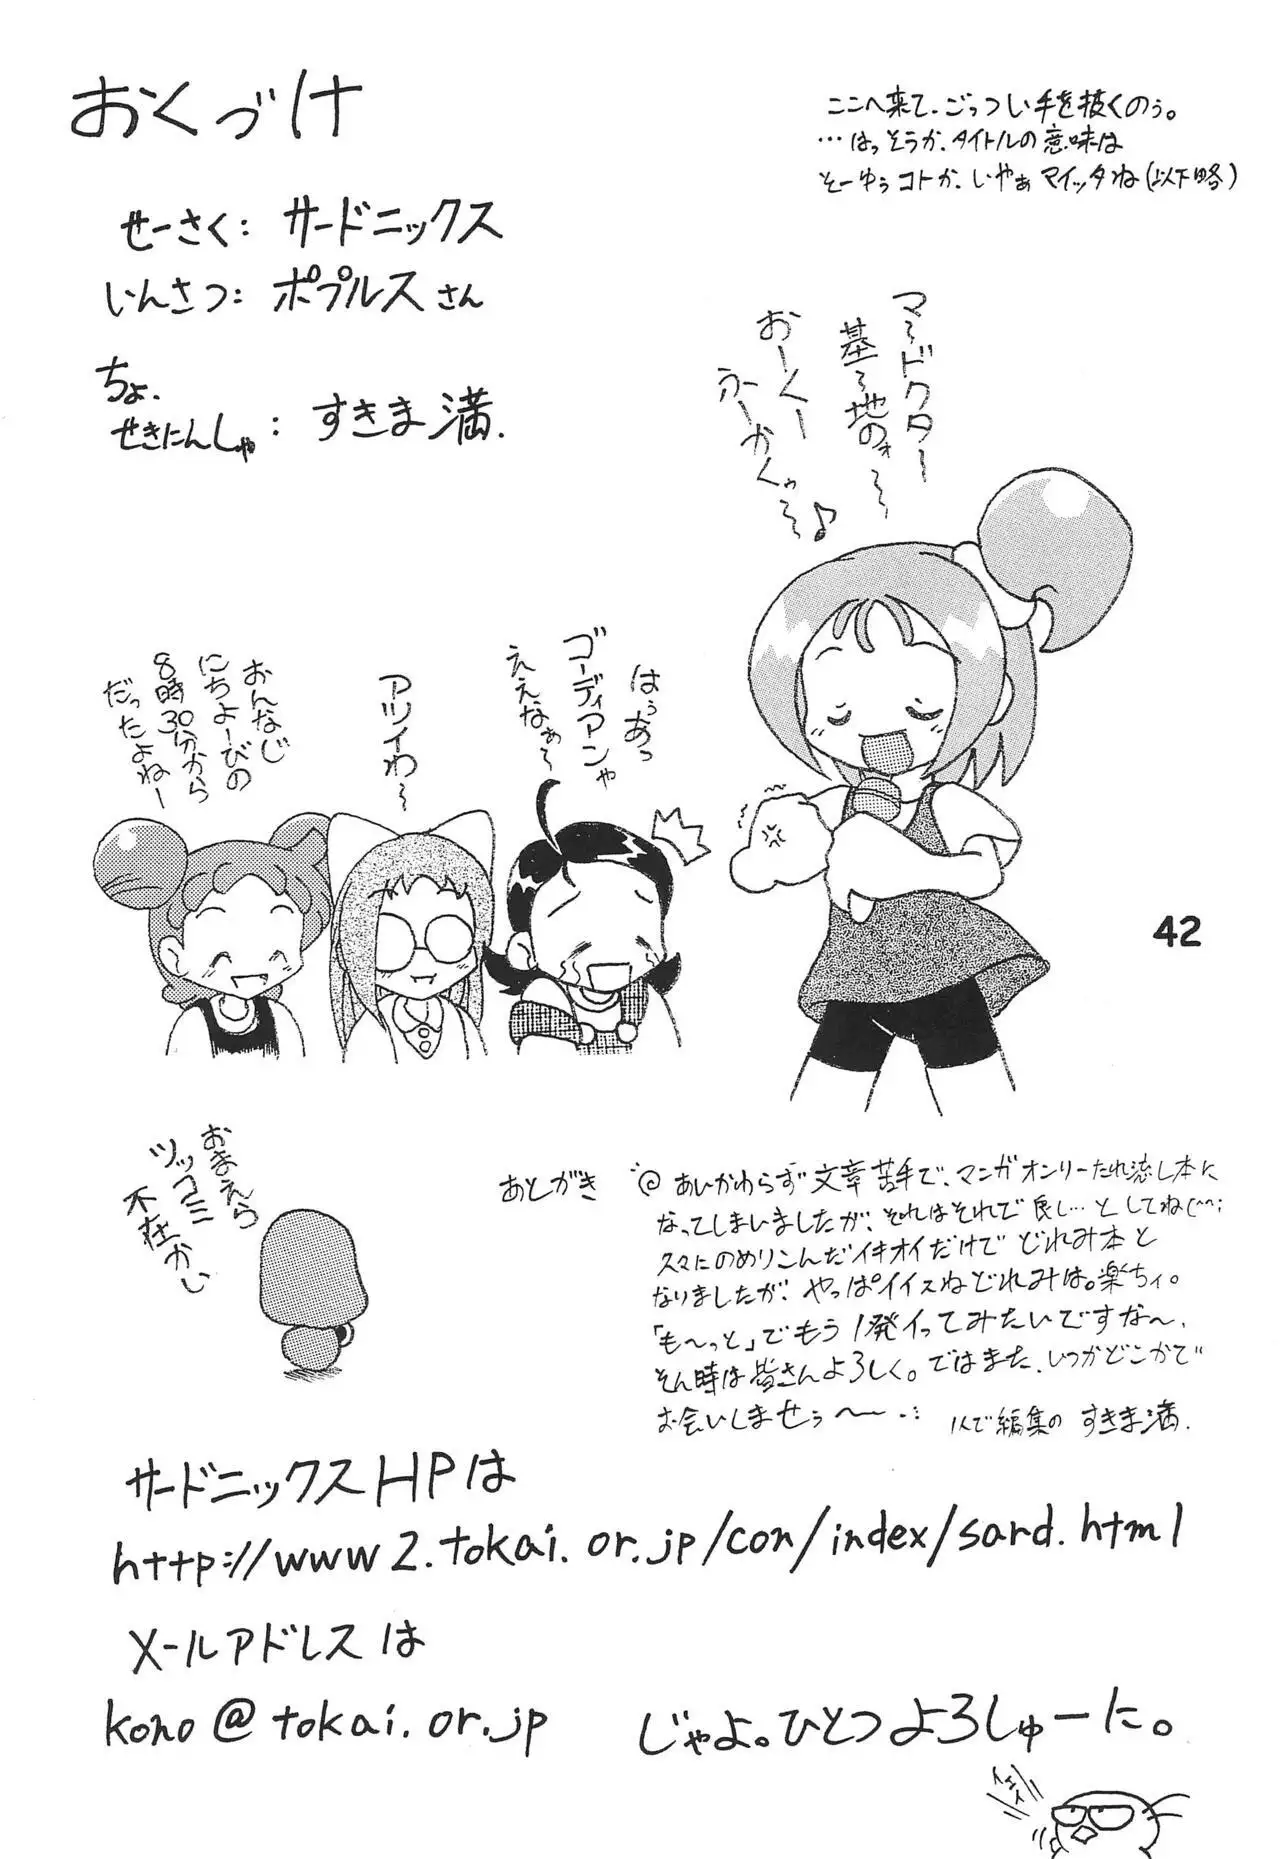 おくづけ
ここへ来て、ごっつい手を抜くのぅ。
…はっそうか、タイトルの意味は
そーゆぅコトか、いやぁマイッタね(以下略)
せーさく: サードニックス
いんさつ: ポプルスさん
ちょ.
せきにんしゃ: すきま満.
マ〜ドクター〜
基〜地のォ〜〜
おーくー
ふーかくゥ〜〜♪
はぅあっ
ゴーディアンゃ
ええなぁ〜
アツイわ〜
おんなじ
にちよーびの
8時30分から
だったよねー
42
おまえら
ツッコミ
不在かい
あとがき
あいかわらず文章苦手で、マンガオンリーたれ流し本に
なってしまいましたが、それはそれで良し…としてね(^^;
久々にのめりこんだイキオイだけでどれみ本と
なりましたが、やっぱイイスねどれみは。楽ちィ。
「も〜っと」でもう1発イってみたいですな〜、
そん時は皆さんよろしく。ではまた、いつかどこかで
お会いしませぅ〜〜 ・・:
1人で編集の すきま満.
サードニックスHPは
http://www2.tokai.or.jp/con/index/sard.html
メールアドレスは
kono@tokai.or.jp
じゃよ。ひとつよろしゅーに。